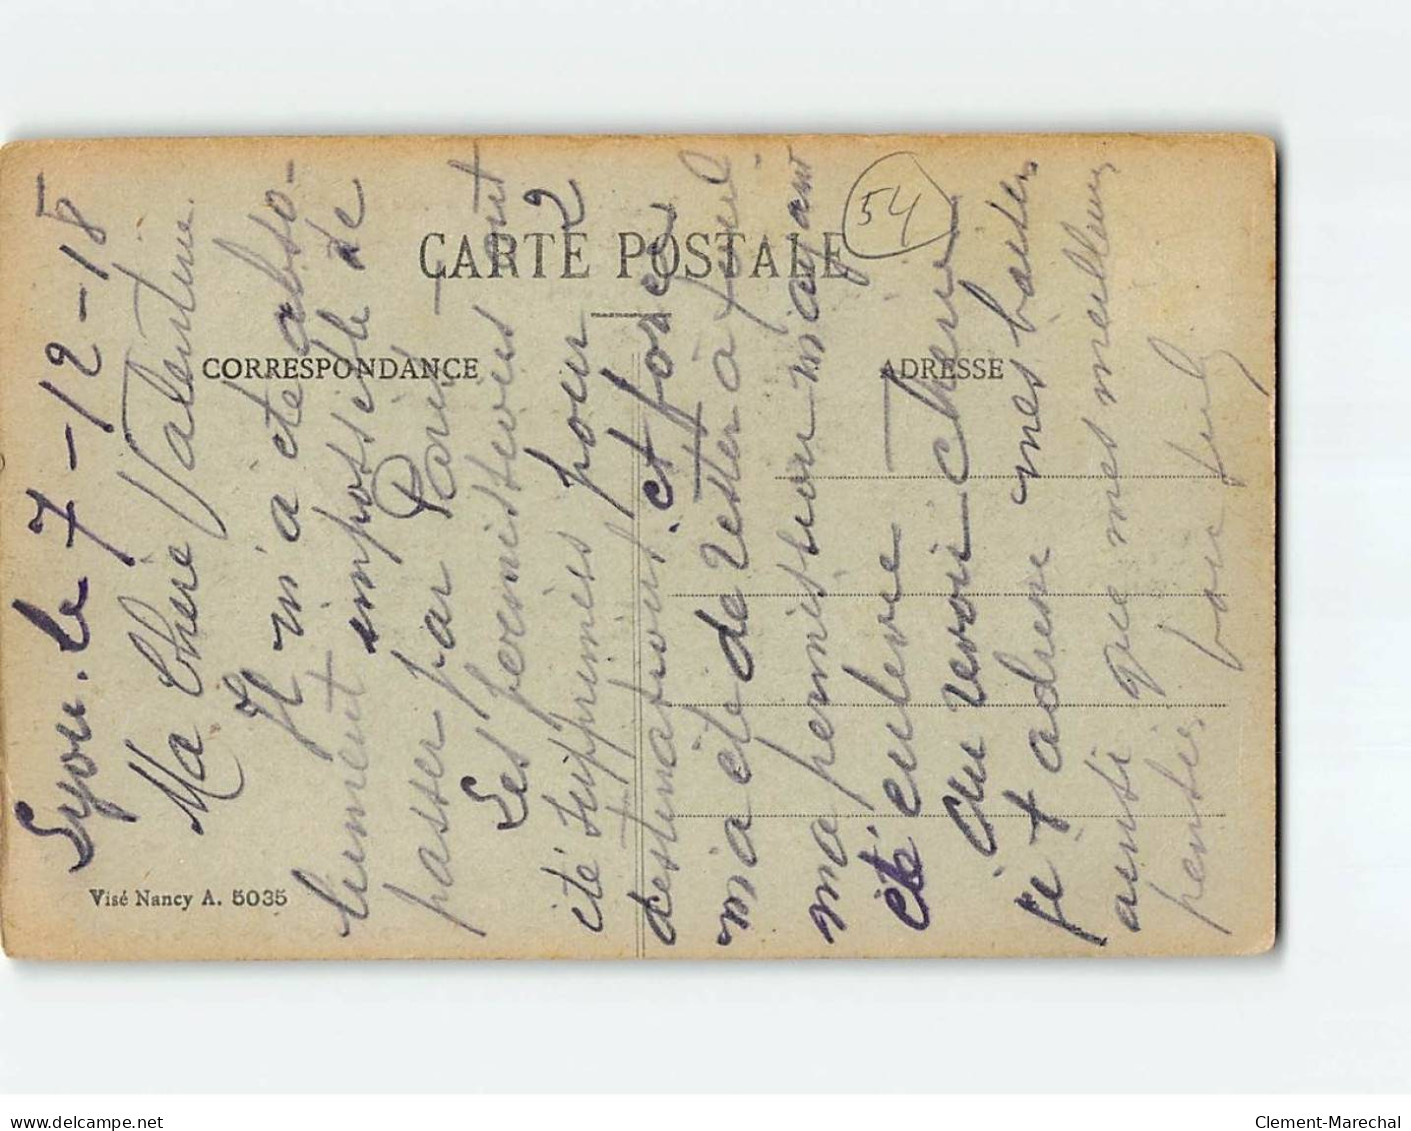 CARTE POSTALE
CORRESPONDANCE
ADRESSE
Visé Nancy A. 5035
54
Lyon. le 7-12-18
Ma Chère Valentine.
Il m'a été abso-
lument impossible de
passer par Paris
Les permissions ont
été supprimées pour 2
destinations. et force
m'a été de rester à
ma permission m'ayant
été enlevée
Au revoir Chère
je t adresse mes baisers
ainsi que mes meilleurs
pensées pour
delcampe.net
Clement-Marechal